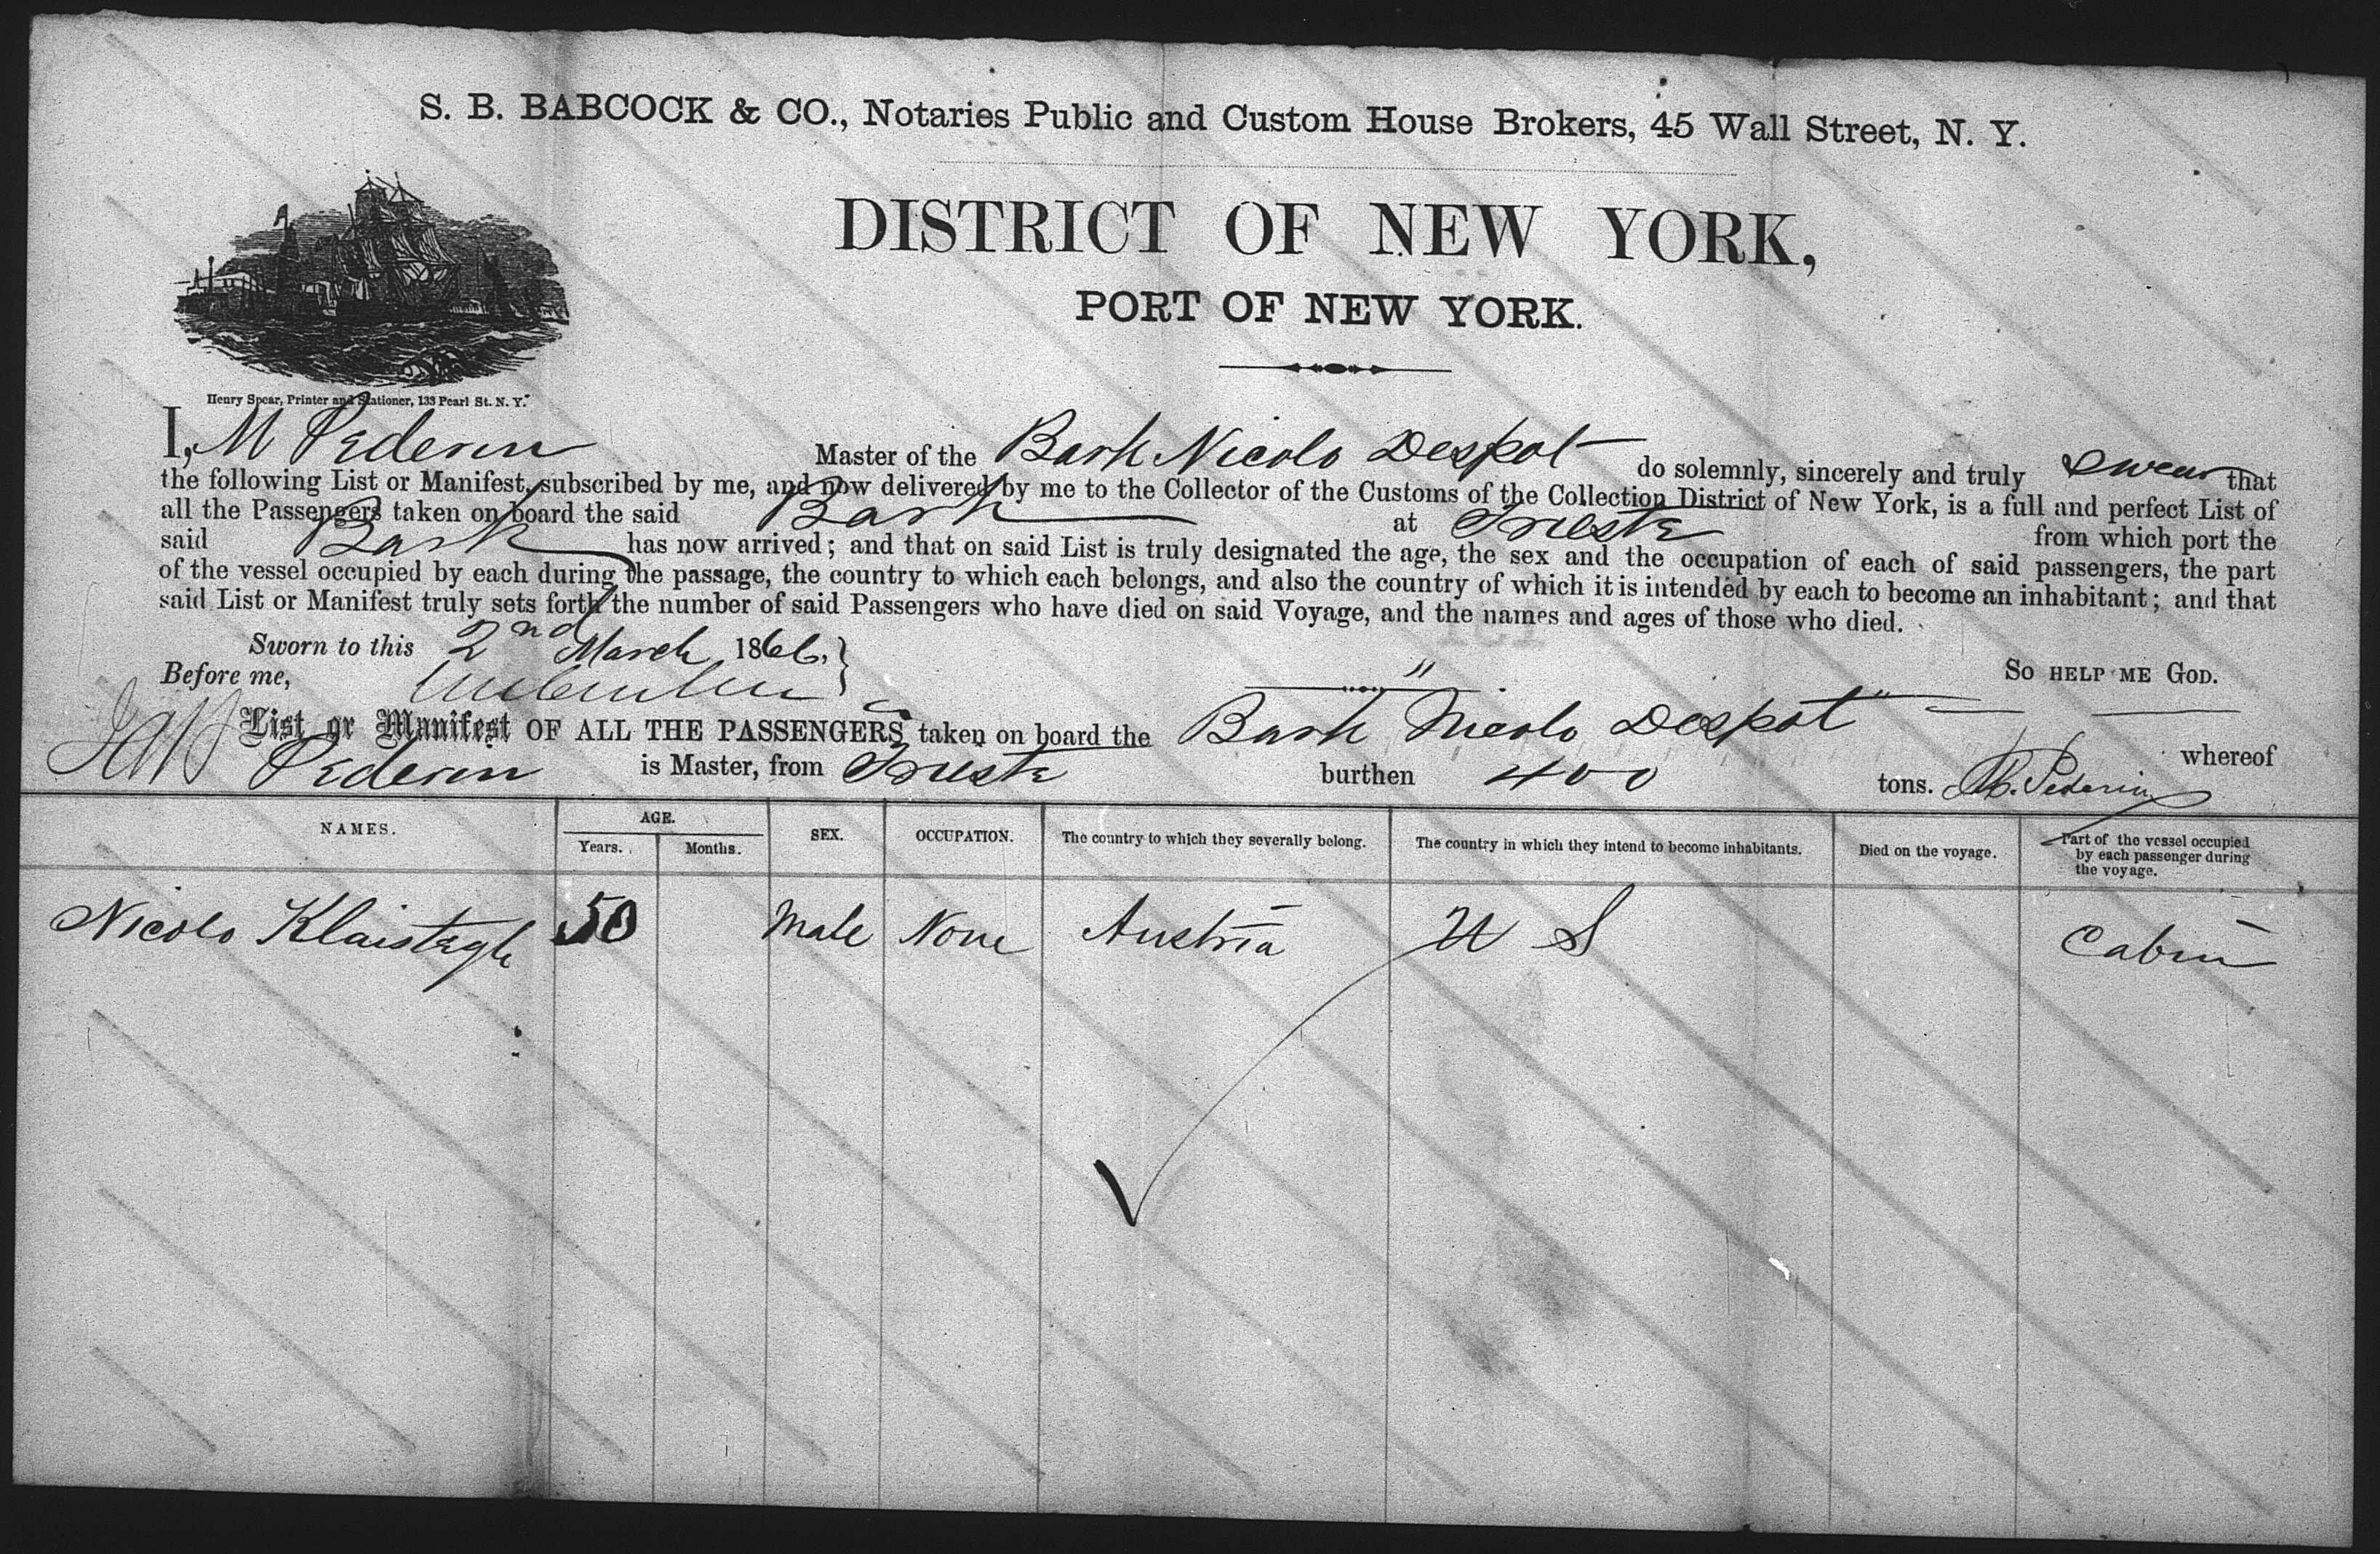 S. B. BABCOCK & CO., Notaries Public and Custom House Brokers, 45 Wall Street, N. Y.
DISTRICT OF NEW YORK,
PORT OF NEW YORK.
Henry Spear, Printer and Stationer, 133 Pearl St. N. Y.
I, M Pederin Master of the Bark Nicolo Despot do solemnly, sincerely and truly swear that
the following List or Manifest, subscribed by me, and now delivered by me to the Collector of the Customs of the Collection District of New York, is a full and perfect List of
all the Passengers taken on board the said Bark at Trieste from which port the
said Bark has now arrived; and that on said List is truly designated the age, the sex and the occupation of each of said passengers, the part
of the vessel occupied by each during the passage, the country to which each belongs, and also the country of which it is intended by each to become an inhabitant; and that
said List or Manifest truly sets forth the number of said Passengers who have died on said Voyage, and the names and ages of those who died.
Sworn to this 2nd March 1866, }
So help me God.
Before me,
List or Manifest OF ALL THE PASSENGERS taken on board the "Bark Nicolo Despot" whereof
Pederin is Master, from Trieste burthen 400 tons. M. Pederin
NAMES. AGE. Years. Months. SEX. OCCUPATION. The country to which they severally belong. The country in which they intend to become inhabitants. Died on the voyage. Part of the vessel occupied by each passenger during the voyage.
Nicolo 50 Male None Austria U S Cabin